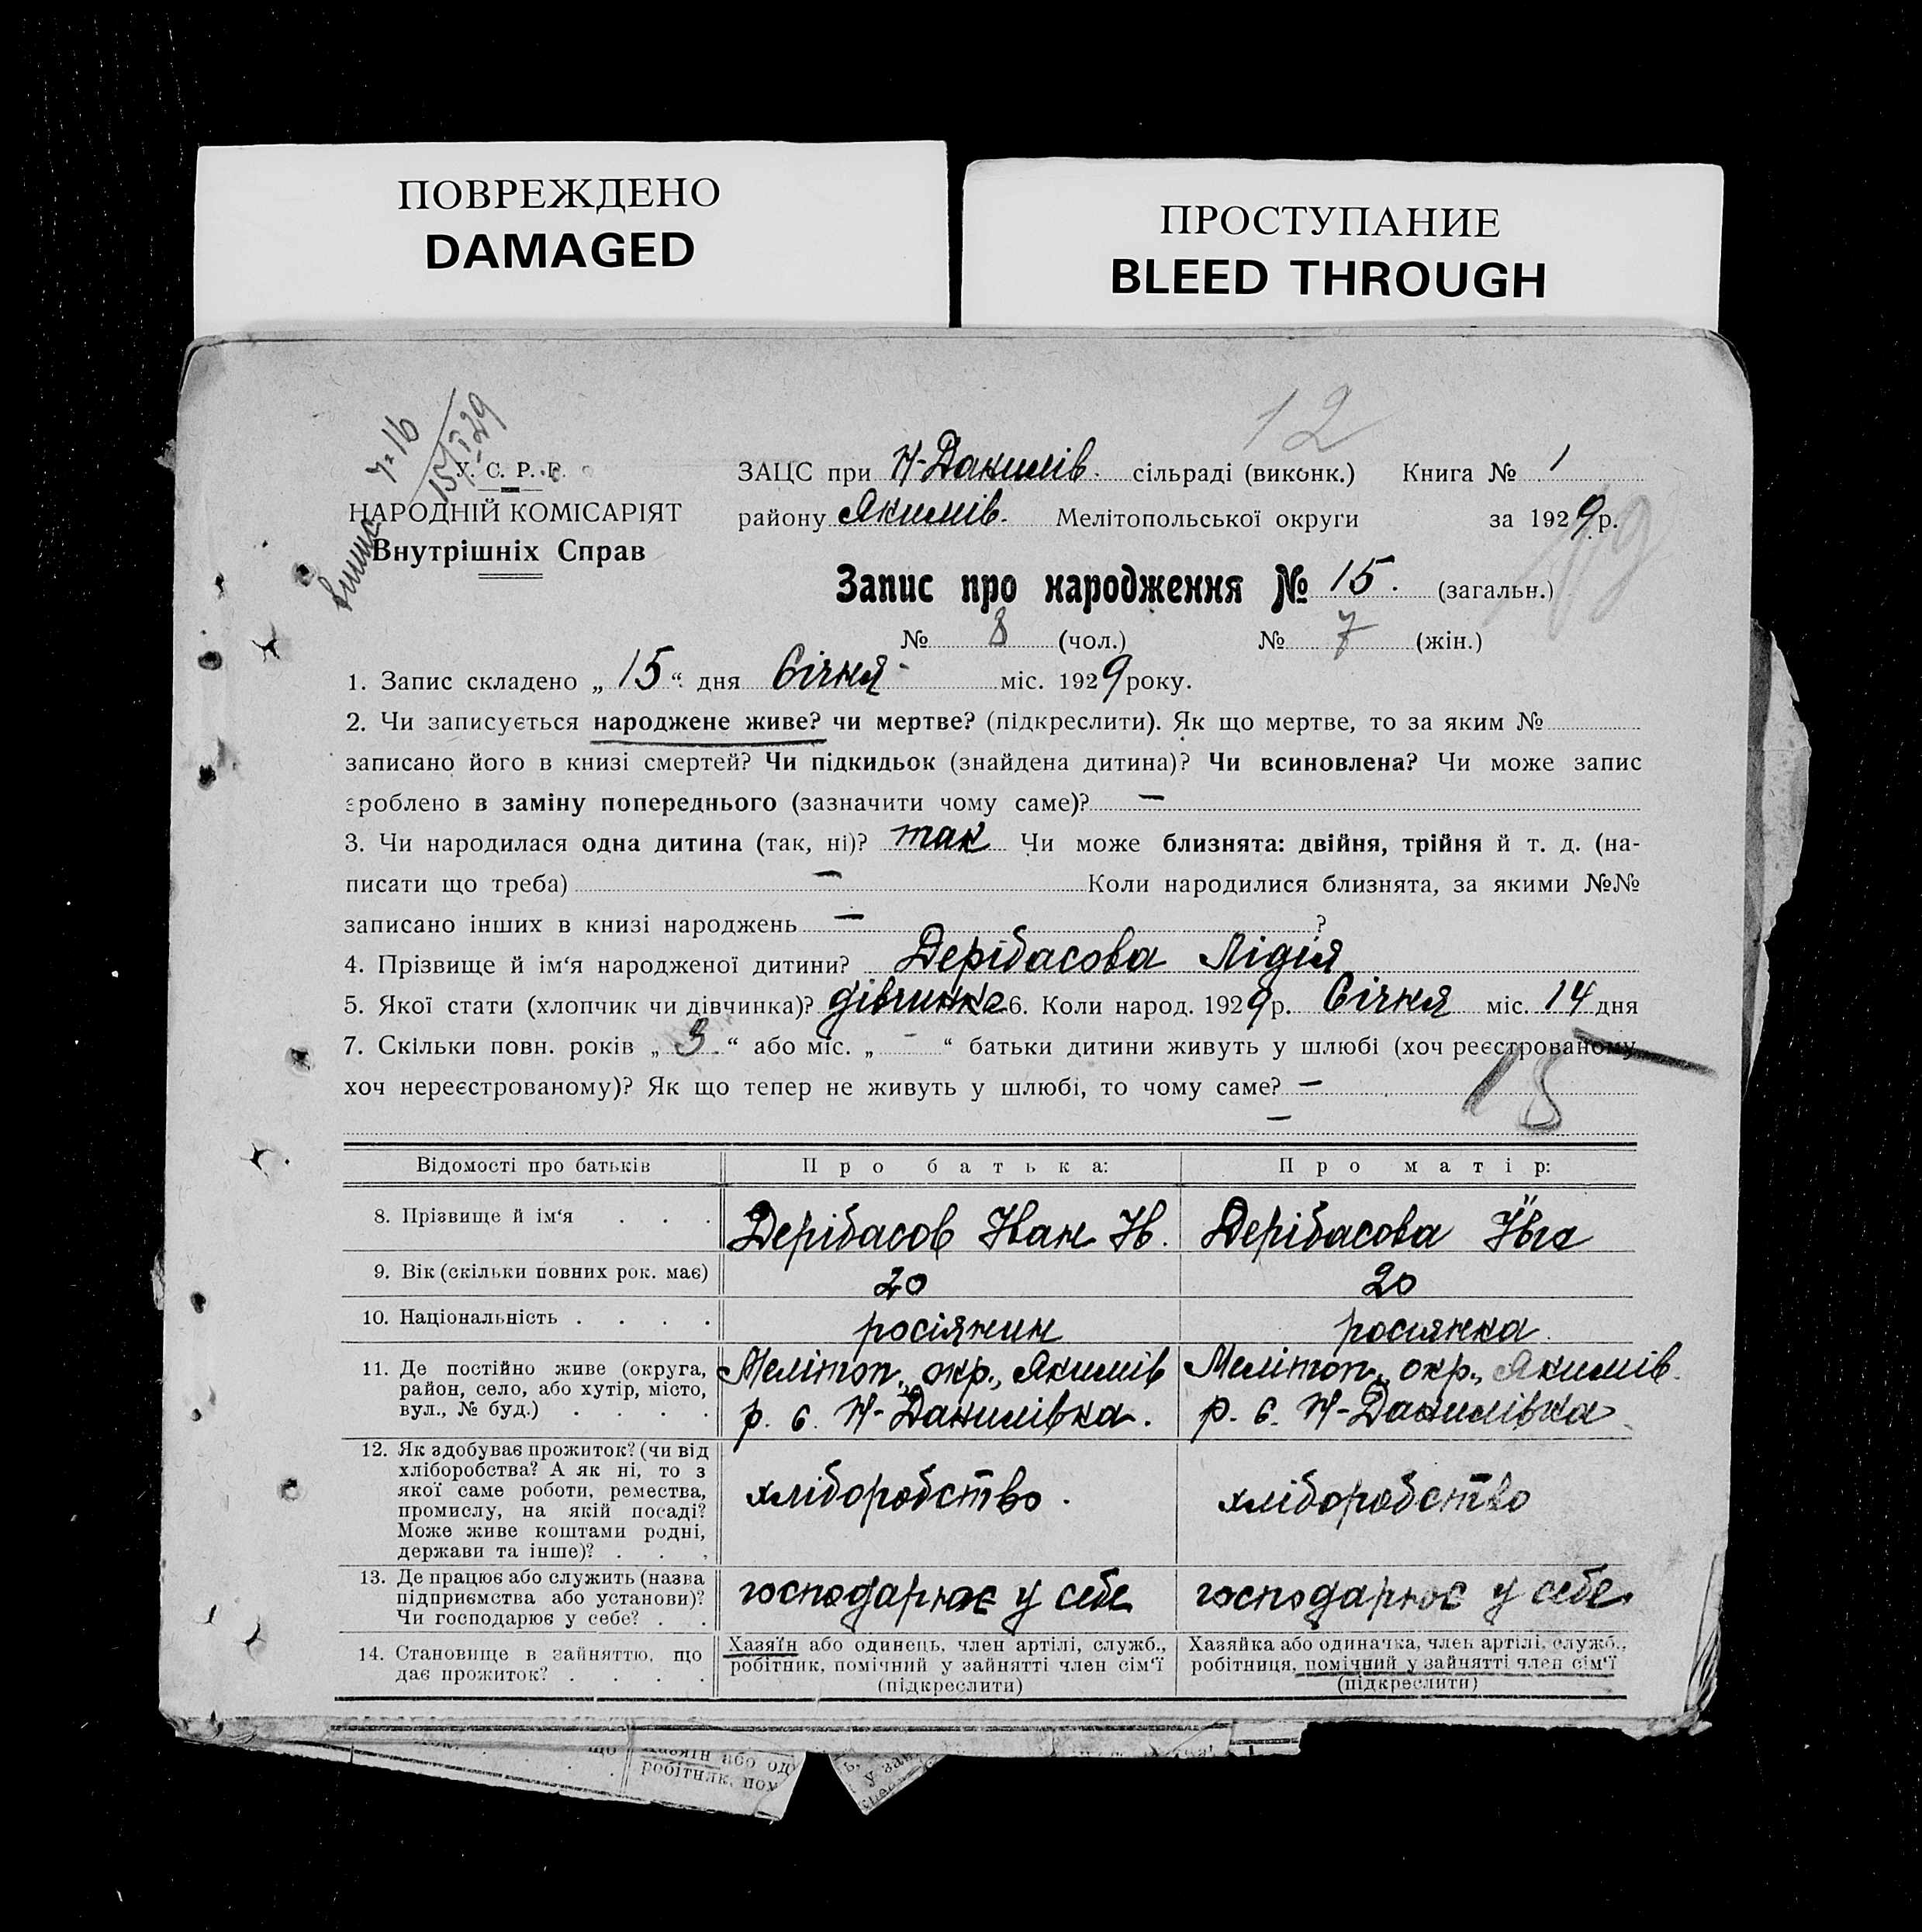 ПОВРЕЖДЕНО
DAMAGED
ПРОСТУПАНИЕ
BLEED THROUGH
12
15/I 29
У. С. Р. Р.
НАРОДНІЙ КОМІСАРІЯТ
Внутрішніх Справ
ЗАЦС при Н-Данилів. сільраді (виконк.) Книга № 1
району Якимів. Мелітопольської округи за 1929 р.
Запис про народження № 15. (загальн.)
№ 8 (чол.) № 7 (жін.)
1. Запис складено „ 15 “ дня Січня міс. 1929 року.
2. Чи записується народжене живе? чи мертве? (підкреслити). Як що мертве, то за яким №
записано його в книзі смертей? Чи підкидьок (знайдена дитина)? Чи всиновлена? Чи може запис
зроблено в заміну попереднього (зазначити чому саме)? —
3. Чи народилася одна дитина (так, ні)? так Чи може близнята: двійня, трійня й т. д. (на-
писати що треба) — Коли народилися близнята, за якими №№
записано інших в книзі народжень — ?
4. Прізвище й ім‘я народженої дитини? Дерібасова Лідія
5. Якої стати (хлопчик чи дівчинка)? дівчинка 6. Коли народ. 1929 р. Січня міс. 14 дня
7. Скільки повн. років „ 3 “ або міс. „ - “ батьки дитини живуть у шлюбі (хоч реєстрованому
хоч нереєстрованому)? Як що тепер не живуть у шлюбі, то чому саме? —
—
Відомості про батьків Про батька: Про матір:
8. Прізвище й ім‘я . . . Дерібасов Іван Ів. Дерібасова Ївга
9. Вік (скільки повних рок. має) 20 20
10. Національність . . . . росіянин росіянка
11. Де постійно живе (округа, район, село, або хутір, місто, вул., № буд.) . . . .
Меліт­оп. окр., Якимів
р. с. Н-Данилівка.
Мелітоп. окр., Якимів.
р. с. Н-Данилівка
12. Як здобуває прожиток? (чи від
хліборобства? А як ні, то з
якої саме роботи, ремества,
промислу, на якій посаді?
Може живе коштами родні,
держави та інше)? . . .
хліборобство. хліборобство
13. Де працює або служить (назва
підприємства або установи)?
Чи господарює у себе? . .
господарює у себе господарює у себе.
14. Становище в зайняттю, що
дає прожиток? . . . .
Хазяїн або одинець, член артілі, служб.,
робітник, помічний у зайнятті член сім‘ї
(підкреслити)
Хазяйка або одиначка, член артілі, служб.,
робітниця, помічний у зайнятті член сім‘ї
(підкреслити)
що
Хазяїн або од
робітник, пом
у зай